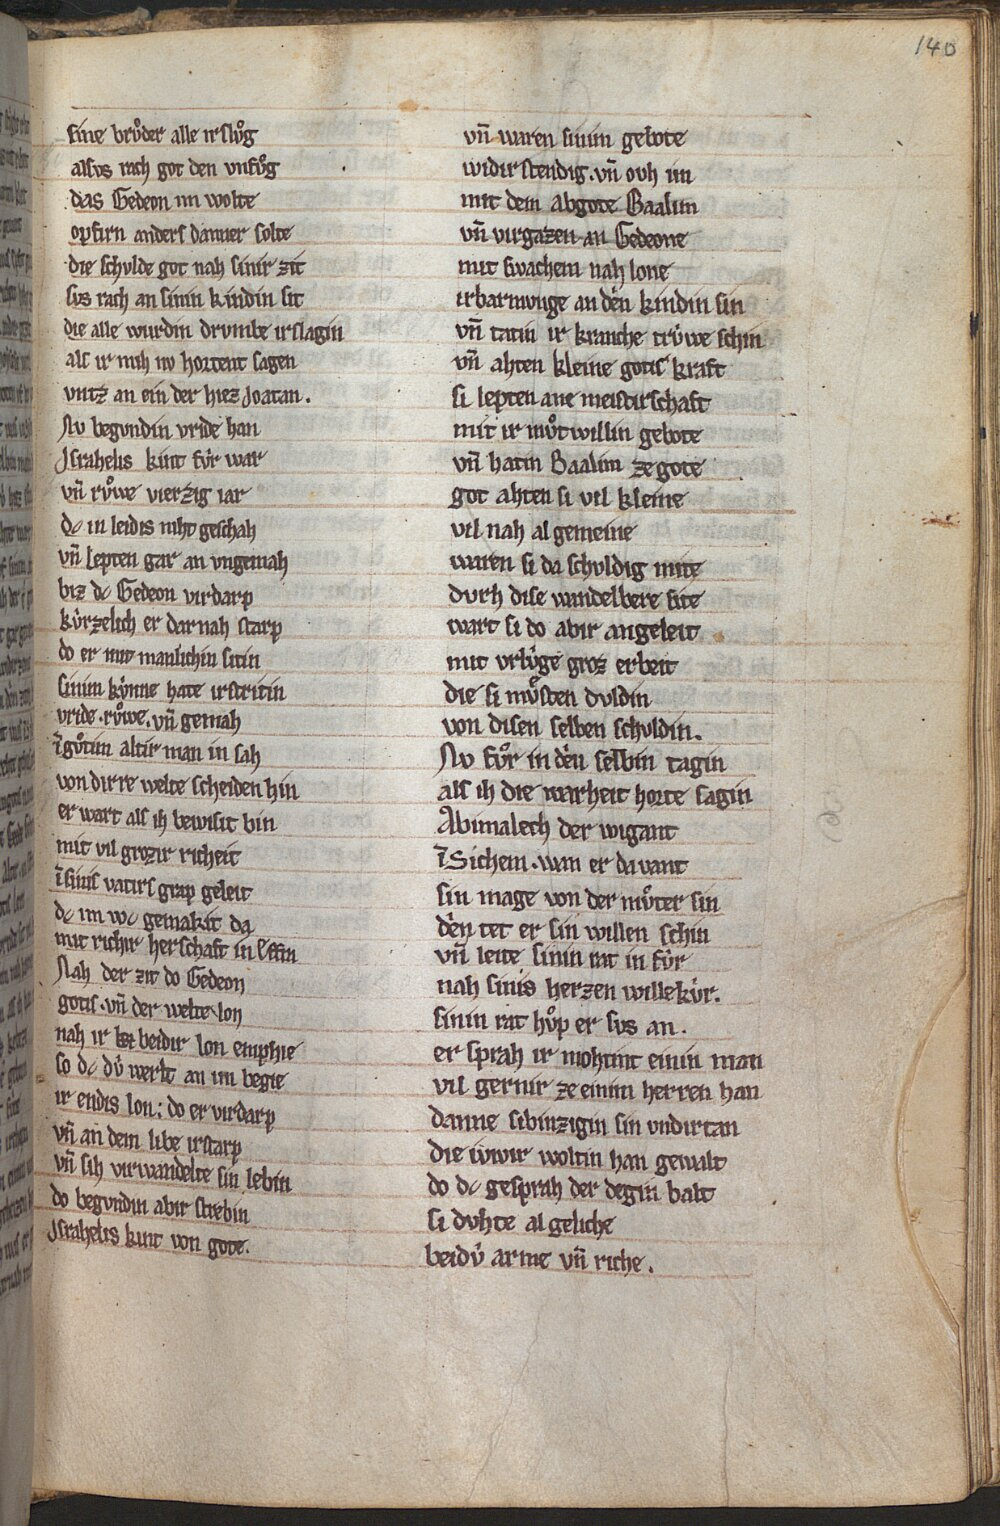 140
sine brůder alle irslůg
alsvs rach got den vnfůg
das Gedeon im wolte
opfirn anders danner solte
die schvlde got nah sinir zit
svs rach an sinin kindin sit
die alle wurdin drvmbe irslagin
als ir mih nv hortent sagen
vntz an ein der hiez Joatan.
Nv begvndin vride han
Jsrahelis kint fv̊r war
vn̄ rv̊we vierzig iar
dc in leidis niht geschah
vn̄ lepten gar an vngemah
biz dc Gedeon virdarp
kúrzelich er darnah starp
do er mit manlichin sitin
sinim kúnne hate irstritin
vride.rv̊we.vn̄ gemah
ī gůtim altir man in sah
von dirre welte scheiden hin
er wart als ih bewisit bin
mit vil grozir richeit
ī sinis vatirs grap geleit
dc im wc gemakit da
mit richir herschaft in Effra
Nah der zit do Gedeon
gotis.vn̄ der welte lon
nah ir beidir lon emphie
so dc dú werlt an im begie
ir endis lon; do er virdarp
vn̄ an dem libe irstarp
vn̄ sih virwandelte sin lebin
do begvndin abir strebin
Jsrahelis kint von gote.
vn̄ waren sinim gebote
widirstendig.vn̄ ovh im
mit dem abgote Baalim
vn̄ virgazen an Gedeone
mit swachem nah lone
irbarmvnge an dén kindin sin
vn̄ tatin ir kranche trúwe schin
vn̄ ahten kleine gotis kraft
si lepten ane meistirschaft
mit ir můtwillin gebote
vn̄ hatin Baalim ze gote
got ahten si vil kleine
vil nah al gemeine
waren si da schvldig mite
dvrh dise wandelbere site
wart si do abir angeleit
mit vrlúge groz erbeit
die si mv̊sten dvldin
von disen selben schvldin.
Nv fv̊r in dén selbin tagin
als ih die warheit horte sagin
Abimalech der wigant
ī Sichem.wan er da vant
sin mage von der mv̊ter sin
dén tet er sin willen schin
vn̄ leite sinin rat in fúr
nah sinis herzen willekúr.
sinin rat hv̊p er svs an.
er sprah ir mohtint einin man
vil gernir ze einim herren han
danne sibinzigin sin vndirtan
die ivwir woltin han gewalt
do dc gesprah der degin balt
si dvhte al geliche
beidú arme vn̄ riche.